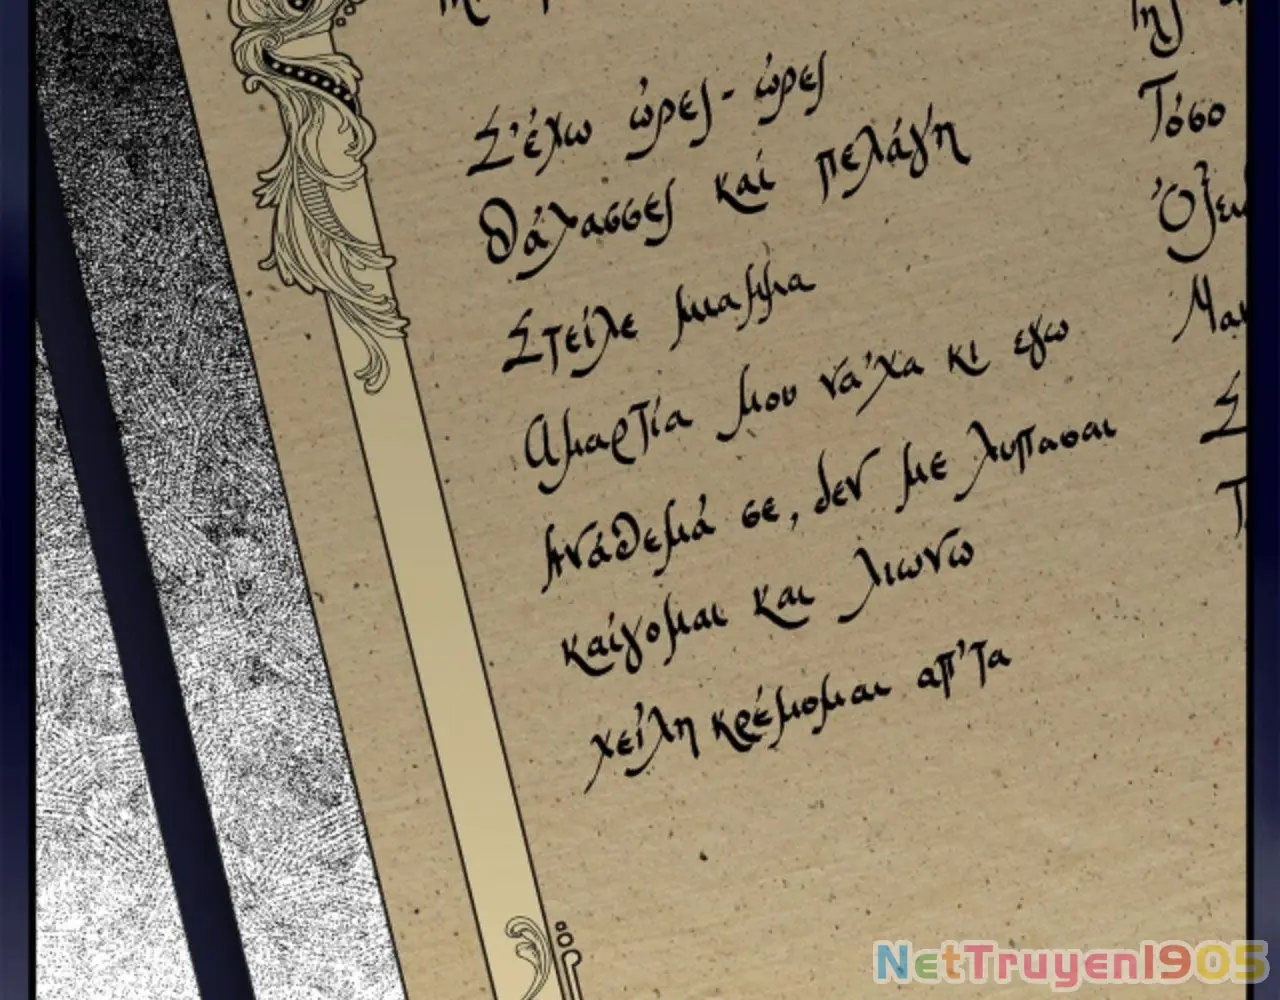 Σ'έχω ώρες - ώρες
θάλασσες καί πελάγη
Στείλε μιαμμα
Αμαρτία μου να'χα κι εγω
Ανάθεμά σε, δεν με λυπασαι
καίγομαι και λιωνω
χείλη κρέμομαι απ'τα
Τόσο
NetTruyen1905